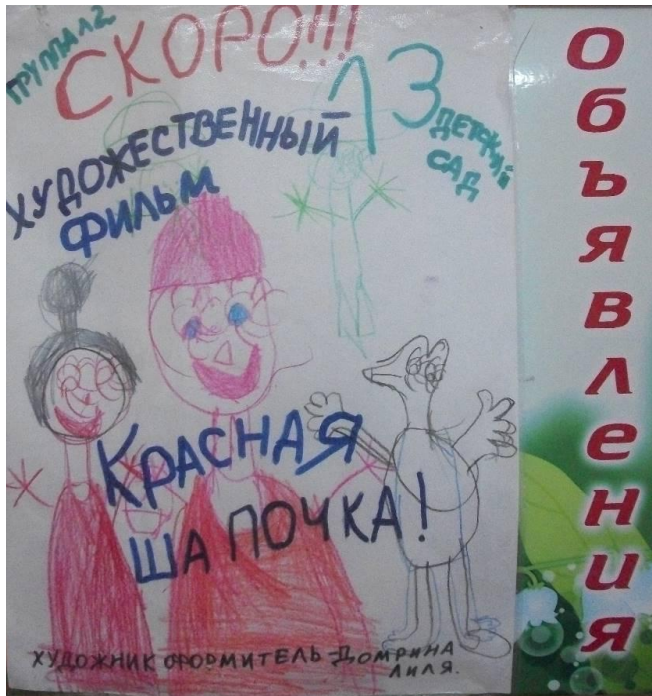 ГРУППА12
СКОРО!!!
13
ДЕТСКИЙ
САД
ХУДОЖЕСТВЕННЫЙ
ФИЛЬМ
КРАСНАЯ
ША ПОЧКА!
ХУДОЖНИК ОФОРМИТЕЛЬ-ДОМРИНА
ЛИЛЯ.
Объявления